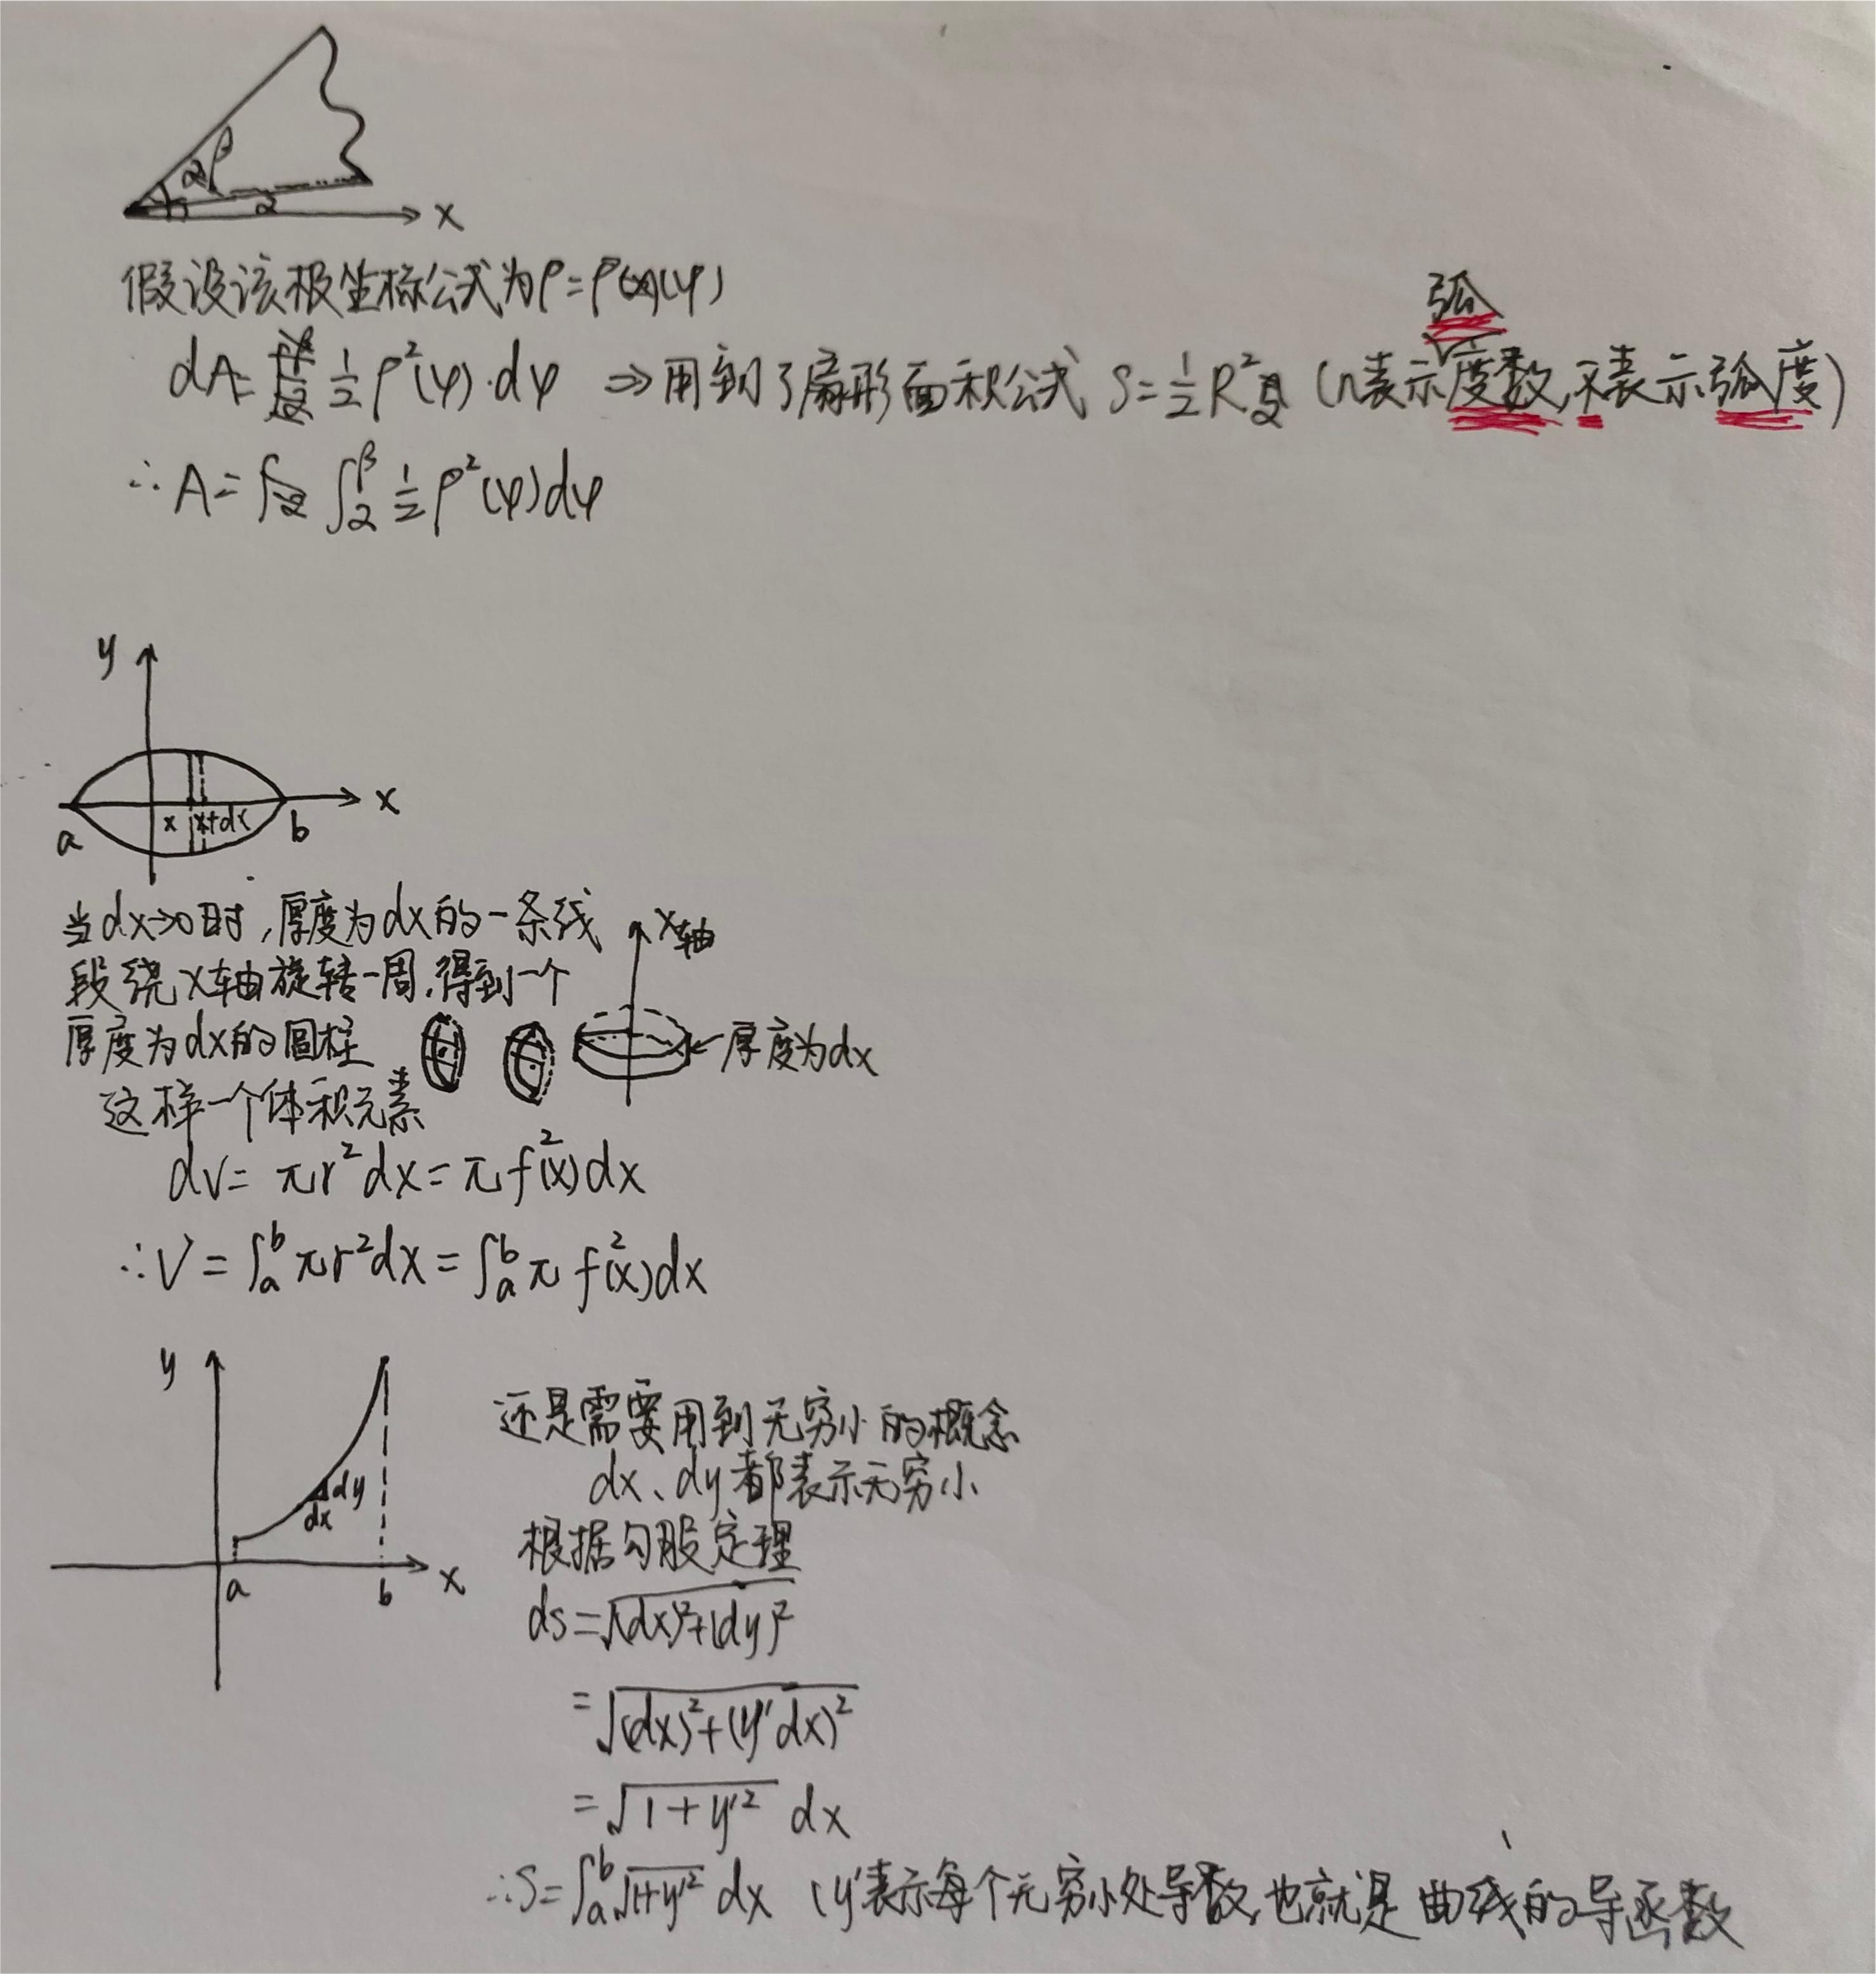 β
α
x
假设该极坐标公式为ρ=ρ(φ)
dA= 1/2 ρ²(φ)·dφ ⇒用到了扇形面积公式 S=1/2 R²α (n表示弧度数,不表示弧度)
∴A= ∫_α^β 1/2 ρ²(φ)dφ
y
x
a x x+dx b
当dx→0时,厚度为dx的一条线
段绕x轴旋转一周,得到一个
厚度为dx的圆柱
x轴
←厚度为dx
这样一个体积元素
dV= πr²dx=πf²(x)dx
∴V=∫_a^b πr²dx=∫_a^b πf²(x)dx
y
dy
dx
a b x
还是需要用到无穷小的概念
dx、dy都表示无穷小
根据勾股定理
ds=√(dx)²+(dy)²
=√(dx)²+(y'dx)²
=√1+y'² dx
∴S=∫_a^b √1+y'² dx (y'表示每个无穷小处导数,也就是曲线的导函数